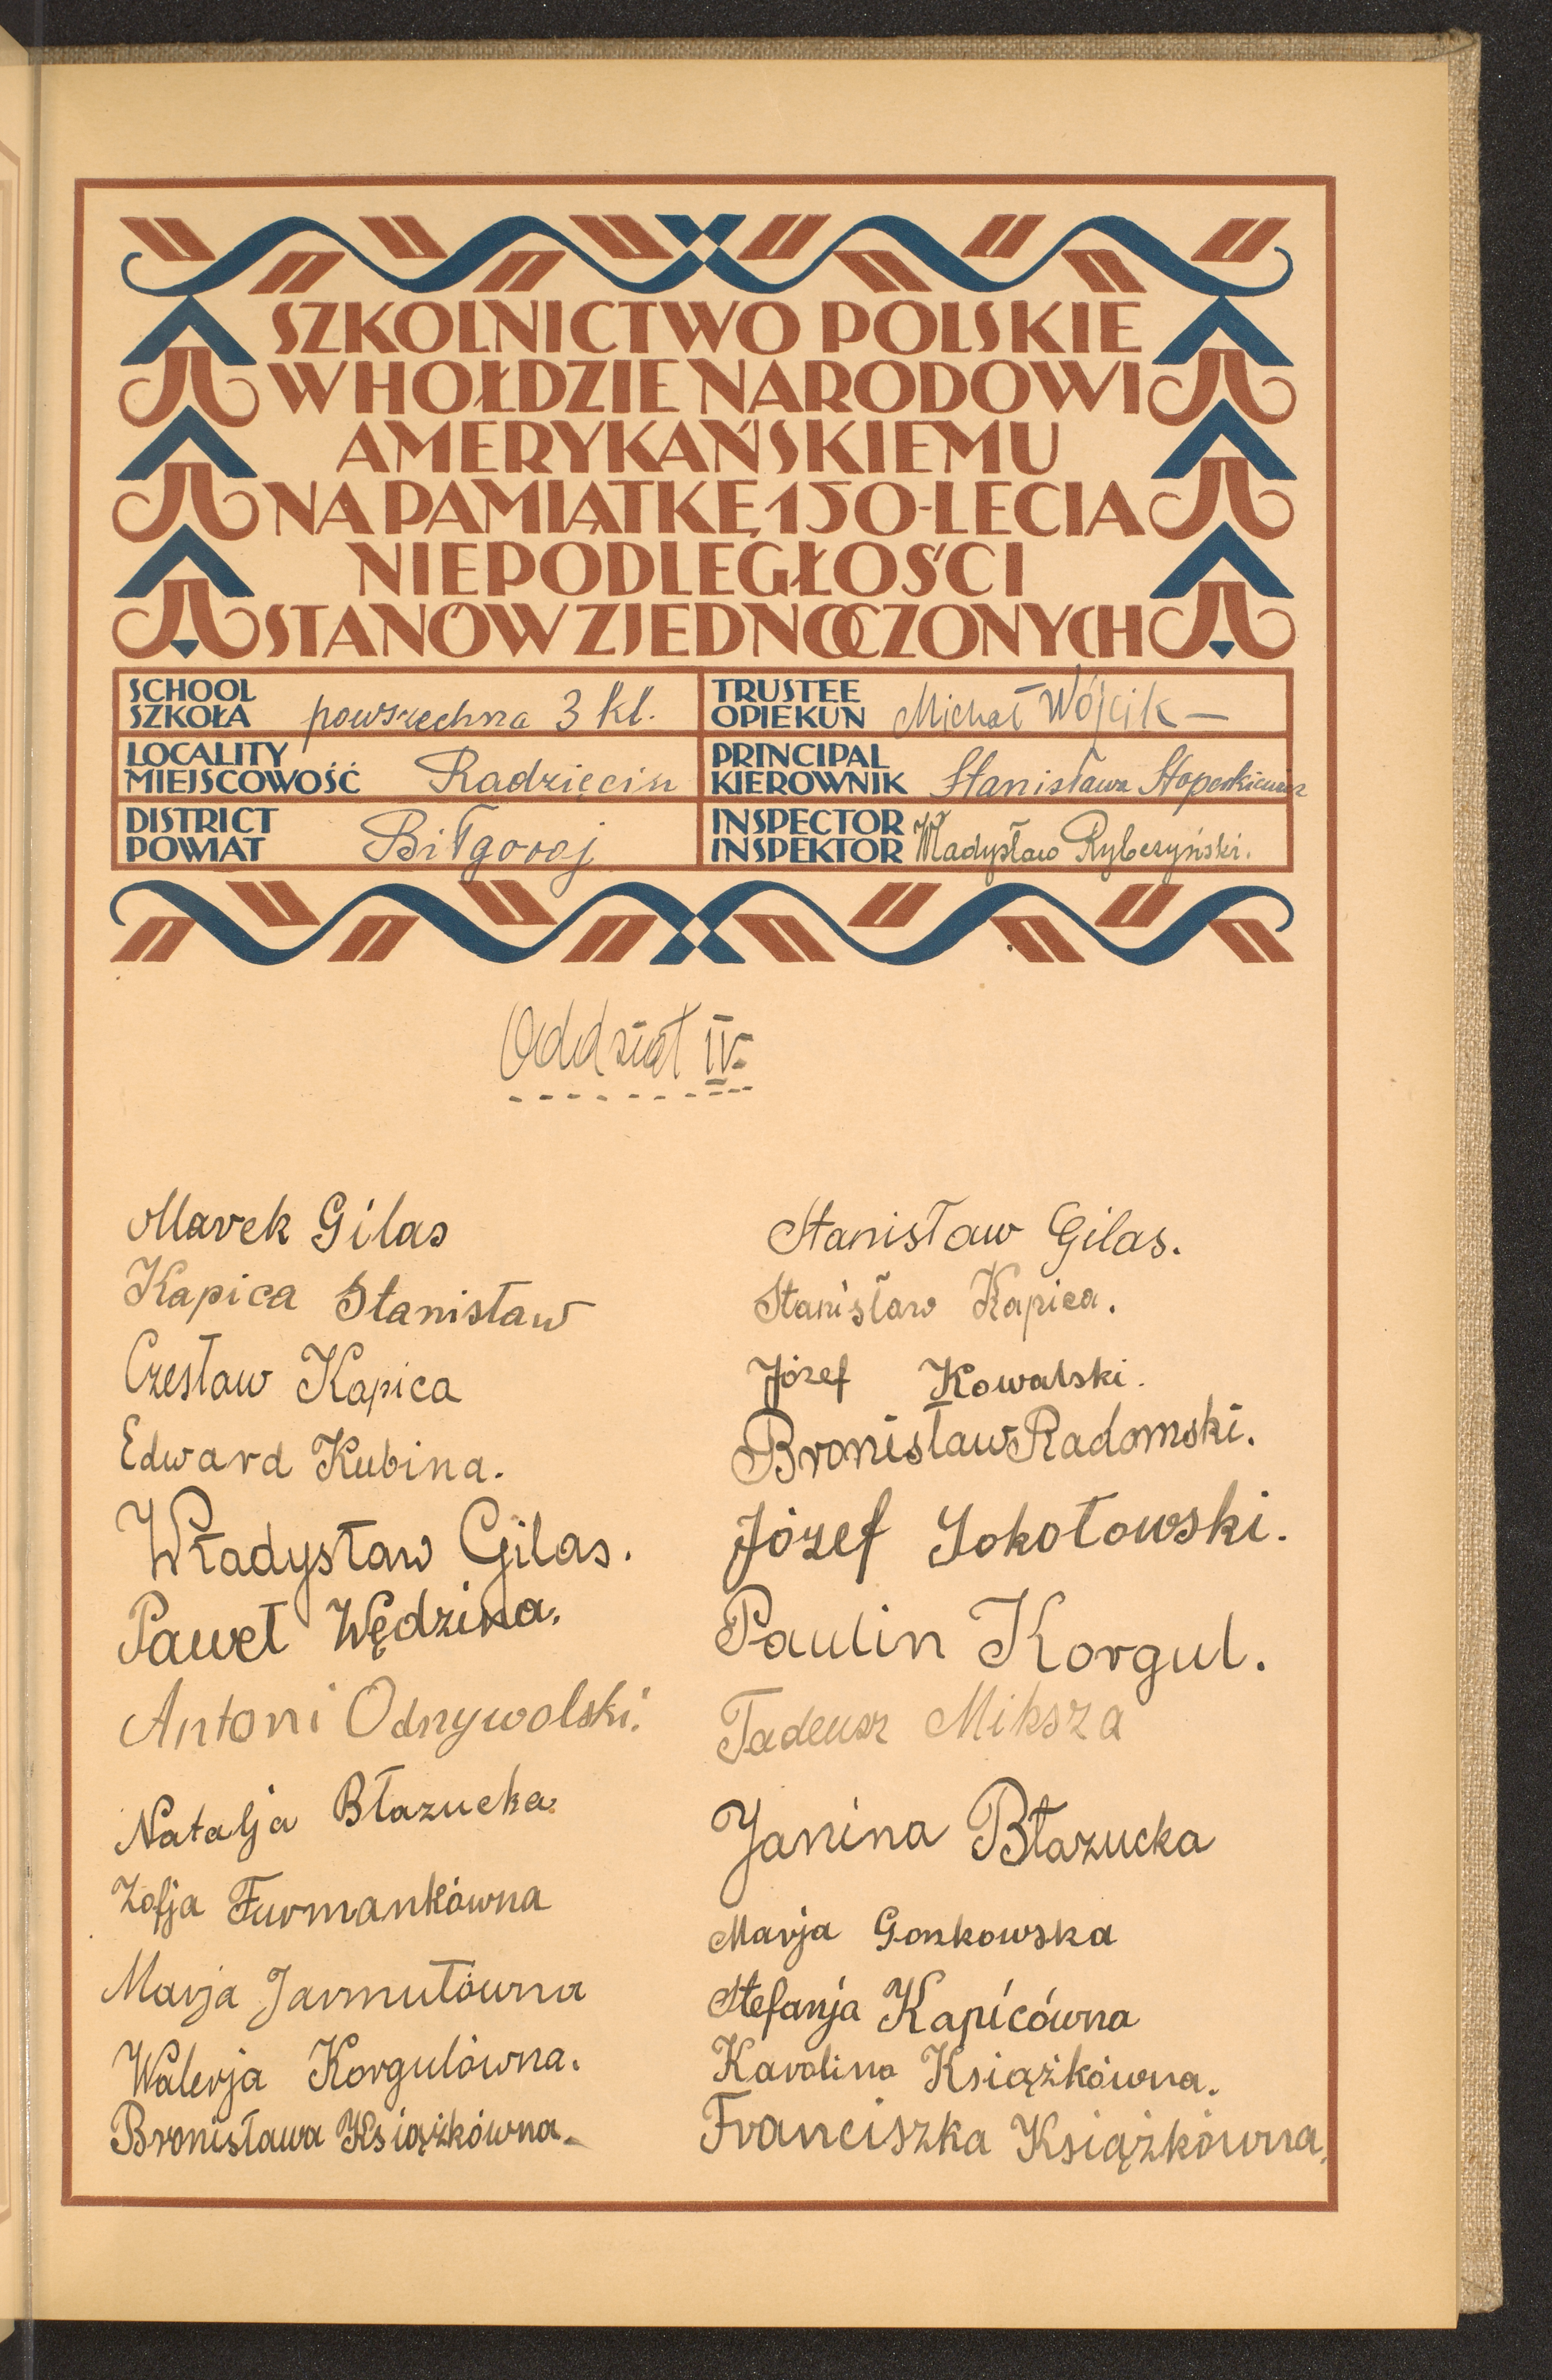 SZKOLNICTWO POLSKIE
W HOŁDZIE NARODOWI
AMERYKAŃSKIEMU
NA PAMIĄTKĘ 150-LECIA
NIEPODLEGŁOŚCI
STANÓW ZJEDNOCZONYCH
SCHOOL
SZKOŁA powszechna 3 kl.
TRUSTEE
OPIEKUN Michał Wójcik —
LOCALITY
MIEJSCOWOŚĆ Radzięcin
PRINCIPAL
KIEROWNIK Stanisława
DISTRICT
POWIAT Biłgoraj
INSPECTOR
INSPEKTOR Władysław Rybczyński.
Oddział IV.
Marek Gilas
Kapica Stanisław
Czesław Kapica
Edward Kubina.
Władysław Gilas.
Paweł Wędzina.
Antoni Odrzywolski.
Natalja Błazucka.
Zofja Furmankówna
Marja Jarmułówna
Walerja Korgulówna.
Bronisława Książkówna.
Stanisław Gilas.
Stanisław Kapica.
Józef Kowalski.
Bronisław Radomski.
Józef Sokołowski.
Paulin Korgul.
Tadeusz Miksza
Janina Błazucka
Marja Gonkowska
Stefanja Kapicówna
Karolina Książkówna.
Franciszka Książkówna.